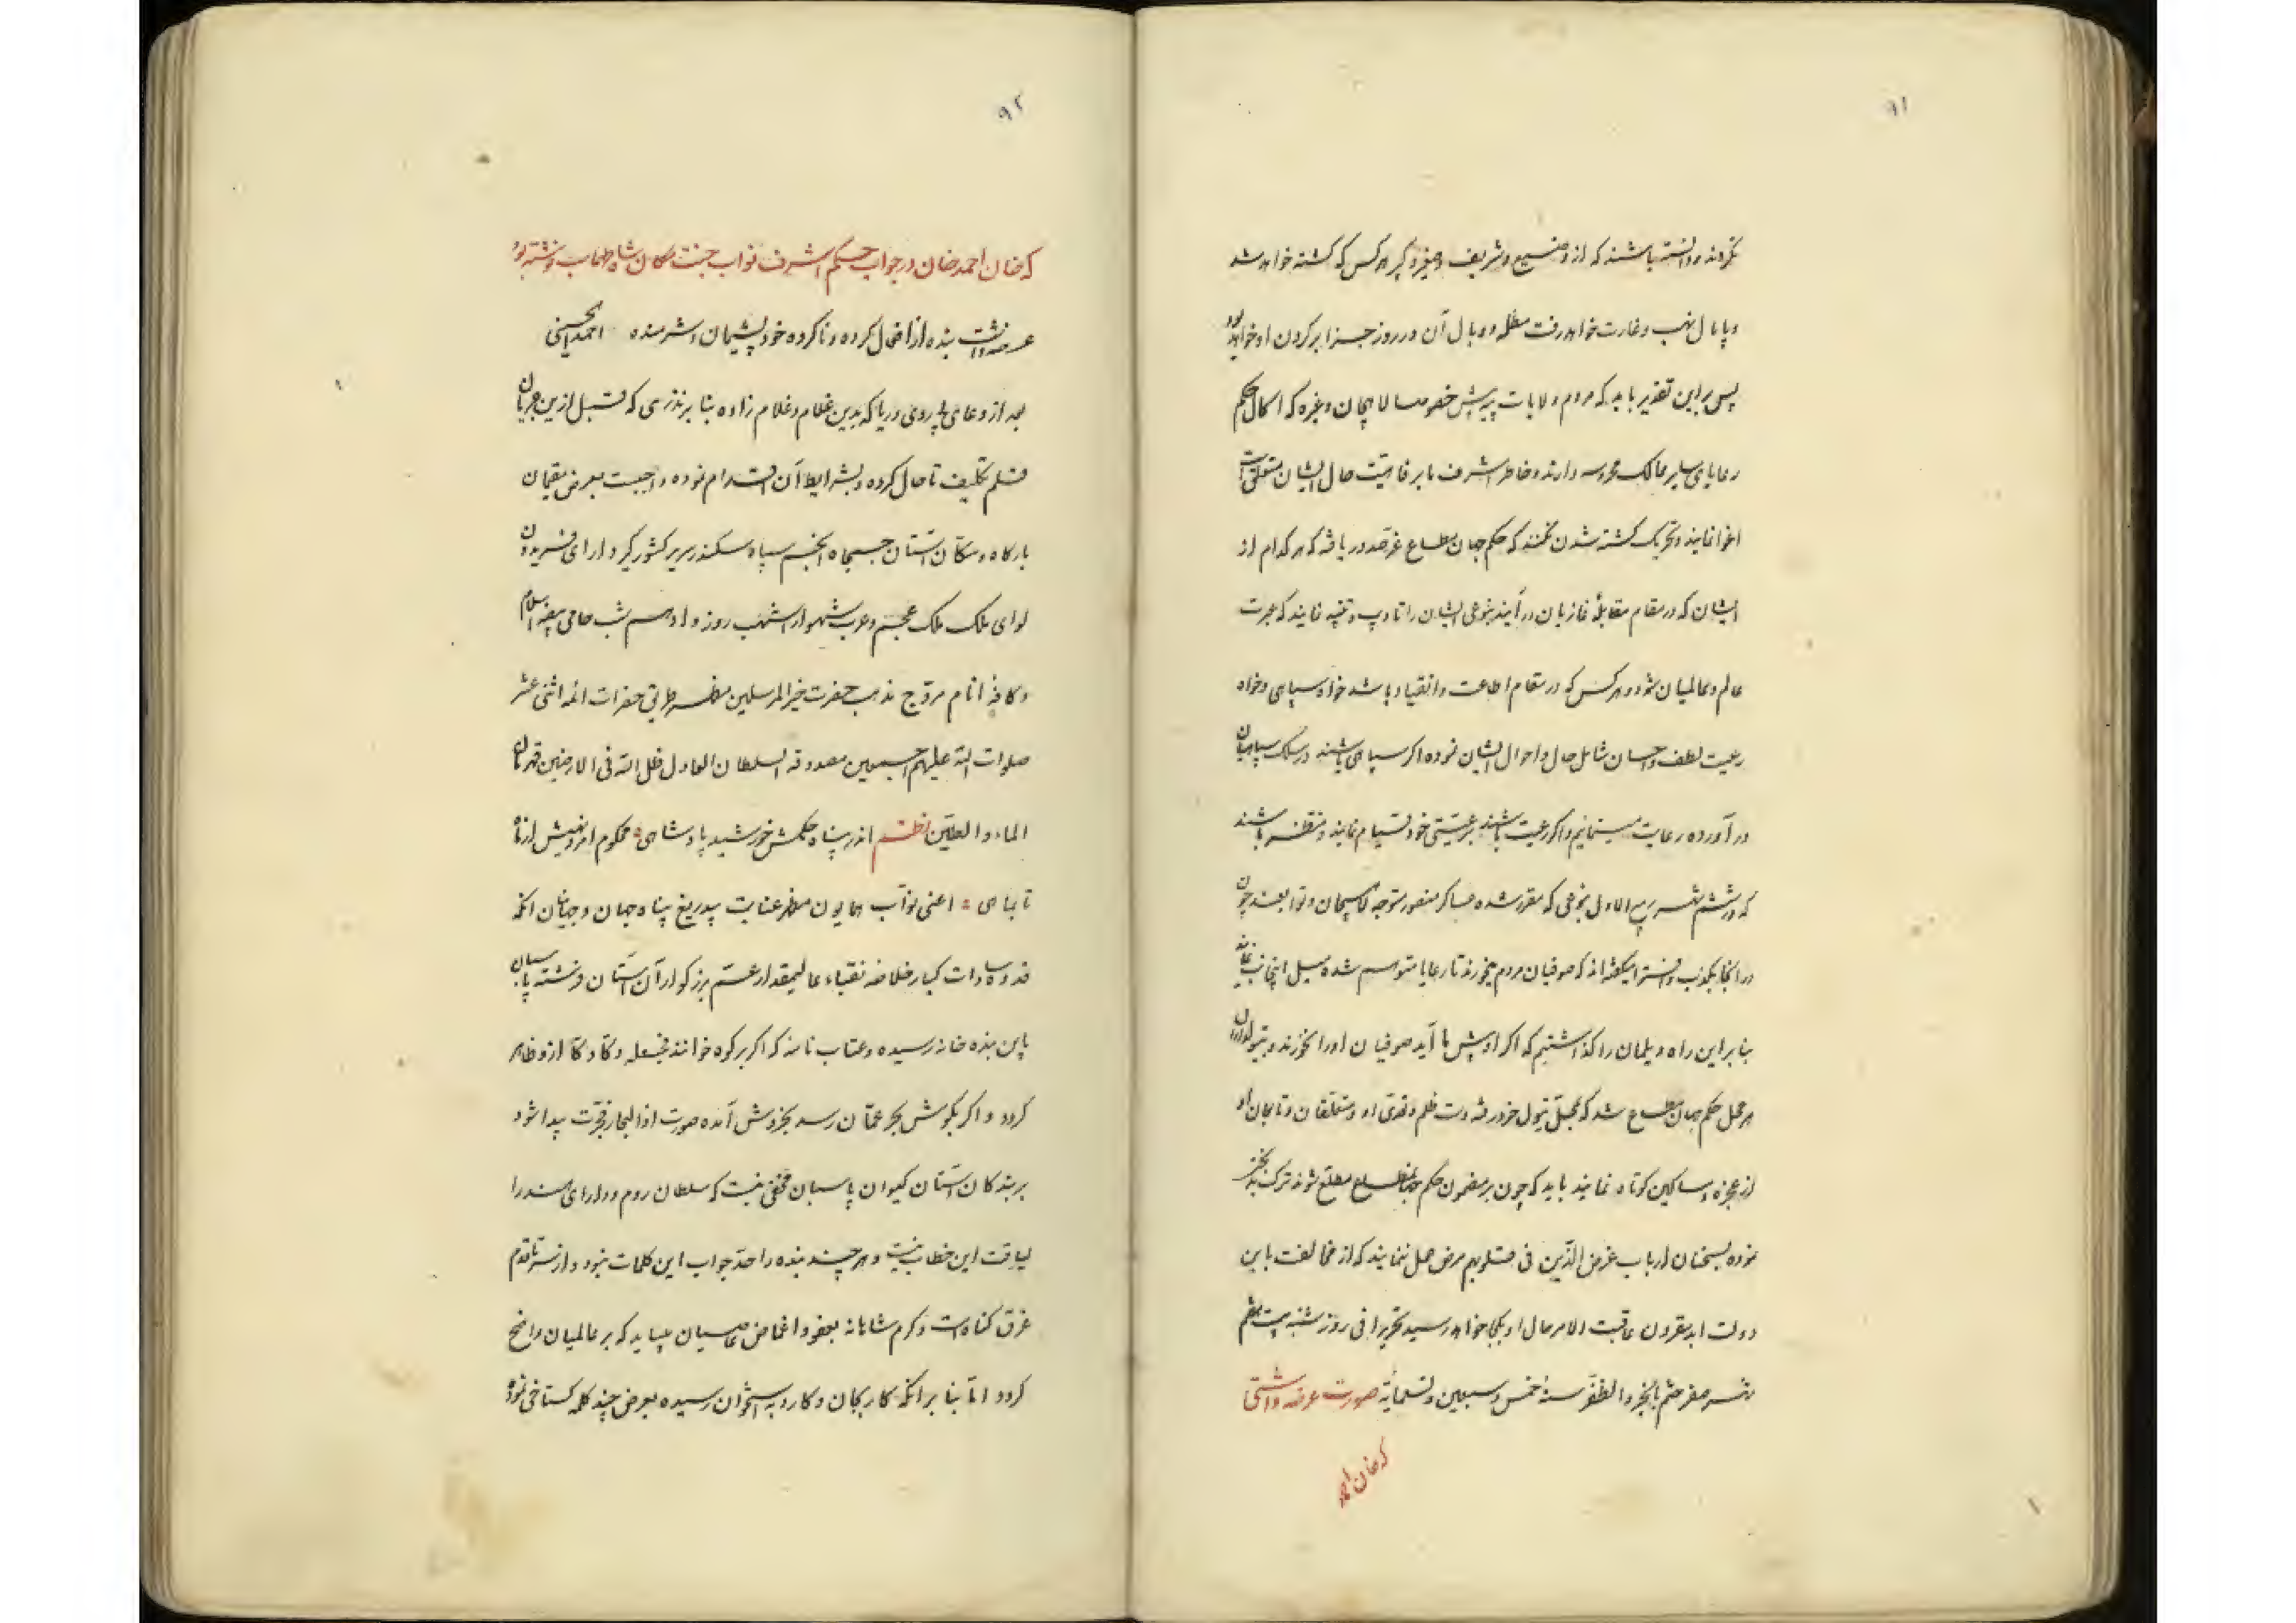 ۹۱
نکردند دانسته باشند که از وضیع و شریف و صغیر و کبیر هر کس که کشته خواهد شد
و پامال نهب و غارت خواهد رفت مظلمه و وبال آن در روز جزا بر گردن او خواهد بود
پس براین تقدیر باید که مردم ولایات پیه پش خصوصا لاهیجان و غیره که اکمال حکم
رعایای سایر ممالک محروسه دارند و خاطر اشرف ما بر فاهیت حال ایشان متعلق است
اغوا نمایند و تحریک کشته شدن نکنند که حکم جهان مطاع عز صدور یافته که هر کدام از
ایشان که در مقام مقابله غازیان در آیند بنوعی ایشان را تادیب و تنبیه نمایند که عبرت
عالم و عالمیان شود و هر کس که در مقام اطاعت و انقیاد باشد خواه سپاهی و خواه
رعیت لطف و احسان شامل حال و احوال ایشان نموده اگر سپاهی باشند در سلک سپاهیان
در آورده رعایت مینمایم و اگر رعیت باشند برعیتی خود قیام نمایند و منتظر باشند
که در ششم شهر ربیع الاول بنوعی که مقرر شده عساکر منصور متوجه لاهیجان و توابعند چون
در انجا بکذب و افترا میگفته اند که صوفیان مردم میخورند تا رعایا متوهم شده میل اینجانب ننمایند
بنابراین راه دیلمان را گذاشتیم که اگر او پیش ما آید صوفیان او را نخورند و بتیولداران
هر محل حکم جهان مطاع شد که بمحل تیول خود رفته دست ظلم و تعدی او و متعلقان و تابعان او
از عجزه و مساکین کوتاه نمایند باید که چون بر مضمون حکم جهانمطاع مطلع شوند ترک
نموده بسخنان ارباب غرض الذین فی قلوبهم مرض عمل ننمایند که از مخالفت باین
دولت ابد مقرون عاقبت الامر حال او بکجا خواهد رسید تحریرا فی روز شنبه بیست هفتم
شهر صفر ختم بالخیر والظفر سنه خمس و سبعین و تسعمایة صورت عرضه داشتی
که خان احمد
۹۲
که خان احمد خان در جواب حکم اشرف نواب جنت مکان شاه طهماسب نوشته بود
عرضه داشت بنده از افعال کرده و ناکرده خود پشیمان و شرمنده احمد الحسینی
بعد از دعای بی روی و ریا که بدین غلام و غلام زاده بنا بر نذری که قبل ازین جریان
قلم تکلیف تا حال کرده و بشرایط آن اقدام نموده واجبست بعرض مقیمان
بارگاه و سکان آستان جمجاه انجم سپاه سکندر سریر کشورگیر دارای فریدون
لوای ملک ملک عجم و عرب شهسوار اشهب روز و ادهم شب حامی بیضه اسلام
و کافه انام مروج مذهب حضرت خیر المرسلین مظهر طریق حضرات ائمه اثنی عشر
صلوات الله علیهم اجمعین مصدوقه السلطان العادل ظل الله فی الارضین قهرمان
الماء والطین نظم اندر پناه حکمش خورشید پادشاهی محکوم امر و نهیش از ماه
تا بماهی اعنی نواب همایون مظهر عنایت بیدریغ پناه جهان و جهانیان انکه
قدوه سادات کبار خلاصه نقباء عالیمقدار عم بزرگوار از آن آستان فرشته پاسبان
باین بنده خانه رسیده و عتاب نامه که اگر بر کوه خوانند فجعله دکا دکا ازو ظاهر
گردد و اگر بگوش بحر عمان رسد بخروش آمده صورت اذا البحار فجرت پیدا شود
بر بندگان آستان کیوان پاسبان مخفی نیست که سلطان روم و دارای هند را
لیاقت این خطاب نیست و هر چند بنده را حد جواب این کلمات نبود و از سر تا قدم
غرق گناهست و کرم شاهانه بعفو و اغماض عاصیان میباید که بر عالمیان واضح
گردد اما بنا بر انکه کار بجان و کارد به استخوان رسیده بعرض چند کلمه گستاخی نموده